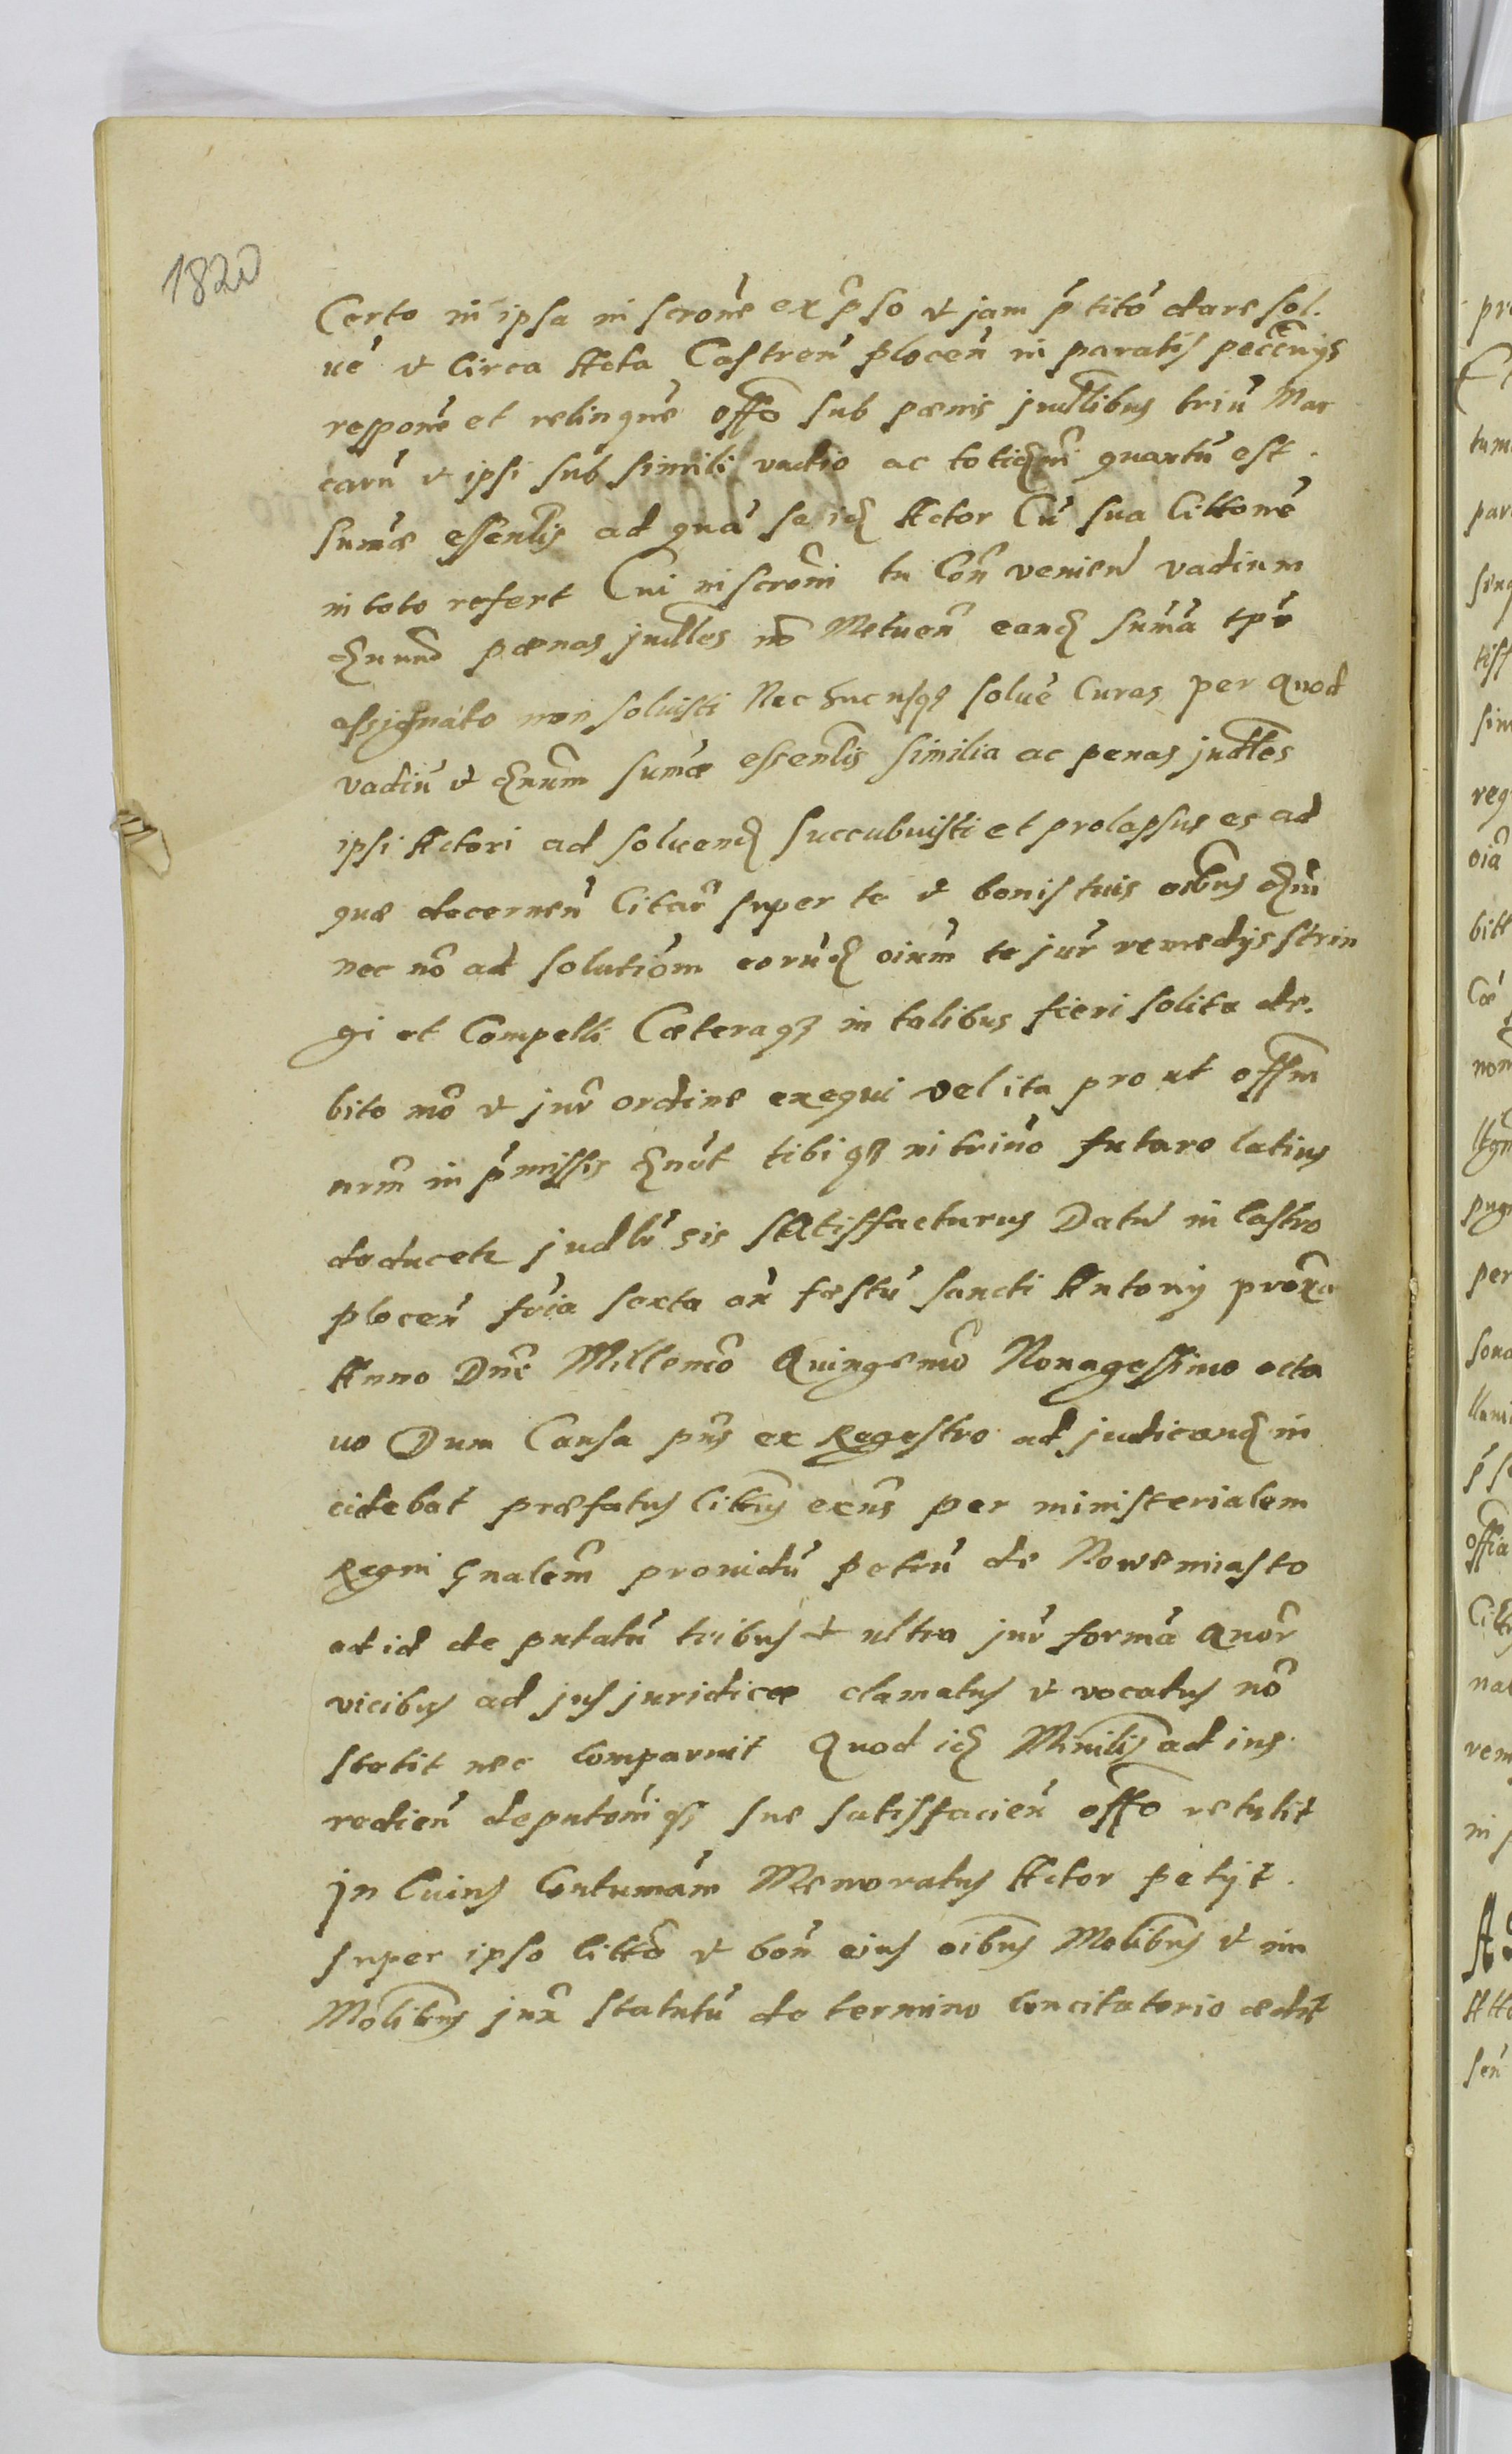 182
Certo in ipsa inscrone exp̃so et jam p̃tito dare sol.
ue et Circa Acta Castren plocen in paratis pecunijs
respone et relinque offo sub pœnis judlibus triu Mar
caru et ipsi sub simili vadio ac toti quartu est.
sumæ essenlis ad qua se id Actor Cu sua Cittone
in toto refert Cui inscroni tu Con venien vadium
pœnas judles no Metuen eand suma tpre
assignato non soluisti Nec hucusq3 solue Curas per quod
vadiu et sumæ essenlis similia ac penas judles
ipsi Actori ad soluend succubuisti et prolapsus es ad
quæ decernen Citar super te et bonis tuis oibus
nec no ad solutiom eorund oium te jur remedijs strin
gi et Compelli Cæteraq3 in talibus fieri solita de.
bito mo et jur ordine exequi vel ita prout offm
nrm in p̃missis tibi q3 in trino futuro latius
deducetr judlr sis satisfacturus Datu in Castro
plocen feria sexta an festu sancti Antonij proxa
Anno Dni Millemo Quingemo Nonagessimo octa
uo Dum Causa pns ex Regestro ad judicand in
cidebat præfatus Cittus exns per ministerialem
Regni Gnalem prouidu petru de Nowemiasto
ad id deputatu tribus et ultra jur forma quor
vicibus ad jus juridice clamatus et vocatus no
stetit nec Comparuit Quod id Minilis ad ius.
redien deputoniq3 sue satisfacien offo retulit
jn Cuius Contumam Memoratus Actor petijt.
super ipso Citto et bon eius oibus Molibus et im
Molibus jux statutu de termino Concitatorio ædit